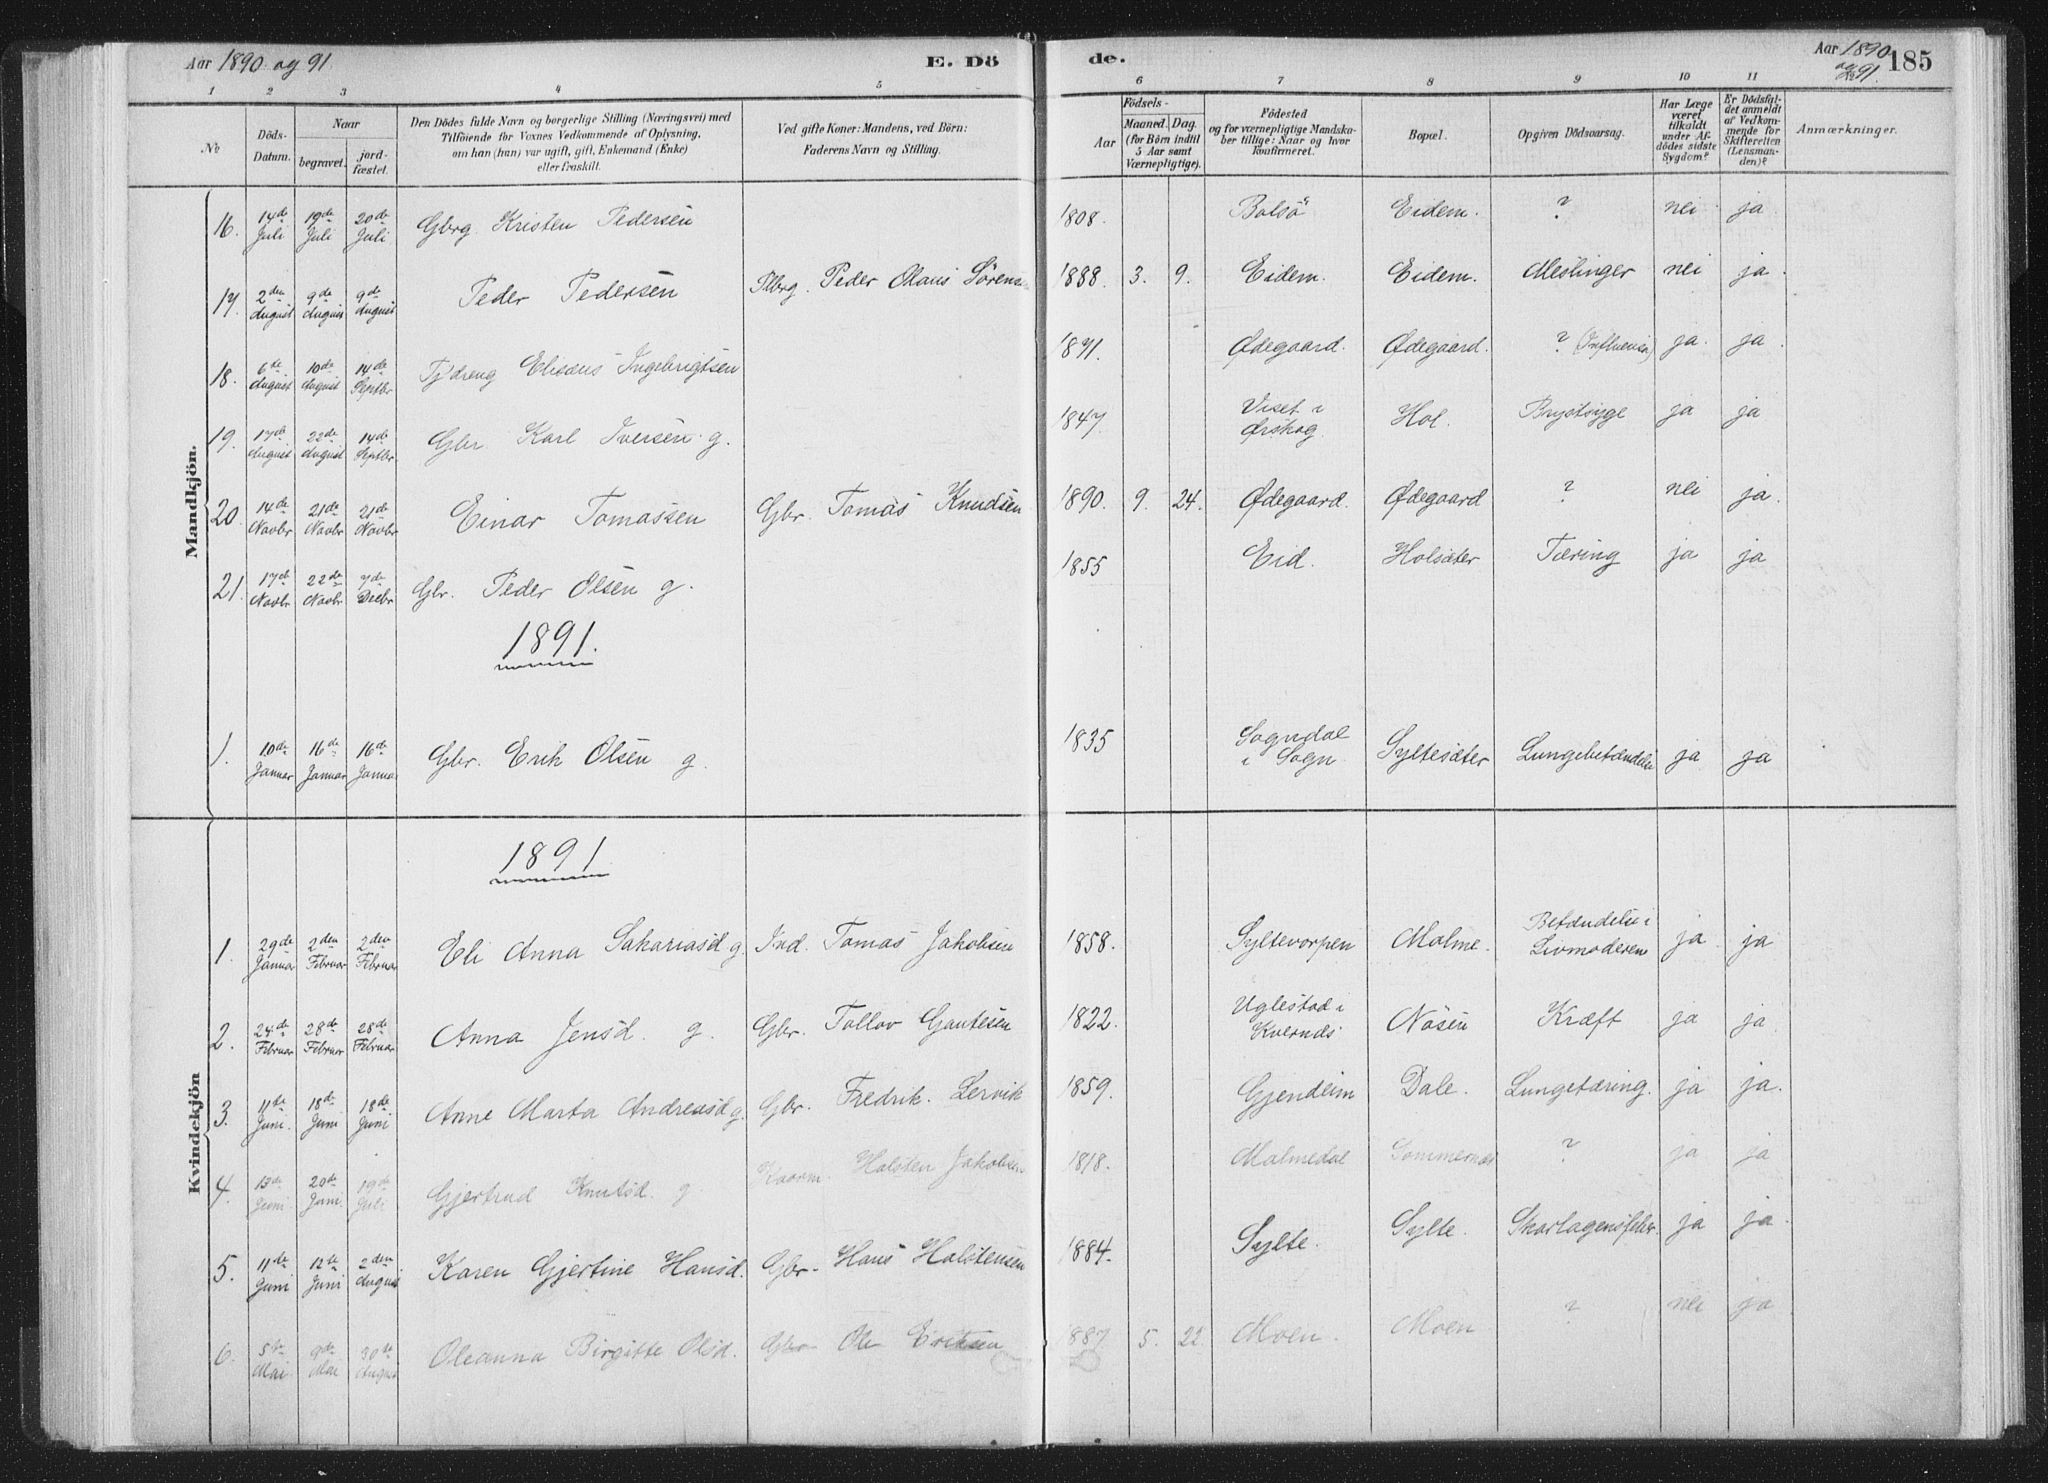 Aar 1890 og 91 E. Dö de. Aar 1890 og 91. 185
1 2 3 4 5 6 7 8 9 10 11 12
No Döds-Datum. Naar begravet. jord-fæstet. Den Dödes fulde Navn og borgerlige Stilling (Næringsvei) med Tilföiende for Voxnes Vedkommende af Oplysning, om han (hun) var ugift, gift, Enkemand (Enke) eller fraskilt. Ved gifte Koner: Mandens, ved Börn: Faderens Navn og Stilling. Födsels- Aar Maaned. Dag. (for Börn indtil 5 Aar samt Værnepligtige). Födested og for værnepligtige Mandskaber tillige: Naar og hvor konfirmeret. Bopæl. Opgiven Dödsaarsag. Har Læge været tilkaldt under Afdödes sidste Sygdom? Er Dödsfaldet anmeldt af Vedkommende for Skifteretten (Lensmanden)? Anmærkninger.
Mandkjön.
16. 14de Juli 19de Juli 20de Juli Gbrg Kristen Pedersen 1808. Bolsö Eidem. ? nei ja
17. 2den August 9de August 9de August Peder Pedersen Plbrg. Peder Olaus Sörensen 1888. 3. 9. Eidem. Eidem. Meslinger nei ja
18. 6te August 10de August 14de Septbr Tjdreng Elisæus Ingebrigtsen 1871. Ødegaard. Ødegaard. ? (Influensa) ja ja
19. 17de August 22de August 14de Septbr. Gbr Karl Iversen g. 1847 Viset i Ørskog Hol. Brystsyge ja ja
20. 14de Novbr 21de Novbr 21de Novbr Einar Tomassen Gbr. Tomas Knudsen 1890. 9. 24. Ødegaard. Ødegaard ? nei ja.
21. 17de Novbr 22de Novbr 7de Decbr Gbr. Peder Olsen g. 1855 Eid. Holsæter Tæring ja ja
1891.
1. 10de Januar 16de Januar 16de Januar Gbr. Erik Olsen g. 1835 Sogndal i Sogn. Syltesæter Lungebetændelse ja ja
Kvindekjön
1891
1. 29de Januar 2den Februar 2den Februar Eli Anna Sakariasd g. Ind. Tomas Jakobsen 1858. Syltevorpen Malme. Betændelse i Livmoderen ja ja
2. 24de Februar 28de Februar 28de Februar Anna Jensd. g. Gbr. Tollov Gautesen 1822. Uglestad i Kvernæs Nösen Kræft ja ja
3. 11te Juni. 18de Juni 18de Juni Anne Marta Andreasd g. Gbr. Fredrik Lervik 1859. Gjendeim Dale. Lungetæring. ja ja.
4. 13de Juni. 20de Juni. 19de Juli Gjertrud Knutsd. g. Kaarm. Halsten Jakobsen 1818. Malmedal Sommernæs ? ja ja
5. 11te Juni 12te Juni 2den August Karen Gjertine Hansd. Gbr. Hans Halstensen 1884. Sylte. Sylte. Skarlagensfeber. ja ja.
6. 5te Mai 9de Mai 30te August Oleanna Birgitte Olsd. Gbr Ole Eriksen 1887 5. 22. Moen. Moen ? nei ja